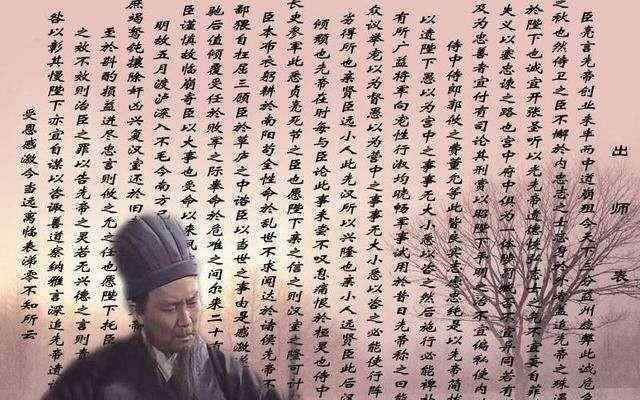 出师表
臣亮言先帝创业未半而中道崩殂今天下三分益州疲弊此诚危急
之秋也然侍卫之臣不懈於内忠志之士忘身於外者盖追先帝之殊遇
於陛下也诚宜开张圣听以光先帝遗德恢弘志士之气不宜妄自菲
失义以塞忠谏之路也宫中府中俱为一体陟罚臧否不宜异同若有
及为忠善者宜付有司论其刑赏以昭陛下平明之治不宜偏私使内
侍中侍郎郭攸之费董允等此皆良实志虑忠纯是以先帝简拔
以遗陛下愚以为宫中之事事无大小悉以咨之然后施行必能裨补
有所广益将军向宠性行淑均晓畅军事试用於昔日先帝称之曰能
众议举宠以为督愚以为营中之事事无大小悉以咨之必能使行阵
劣得所也亲贤臣远小人此先汉所以兴隆也亲小人远贤臣此后汉
倾颓也先帝在时每与臣论此事未尝不叹息痛恨於桓灵也侍中
长史参军此悉贞亮死节之臣也愿陛下亲之信之则汉室之隆可计
臣本布衣躬耕於南阳苟全性命於乱世不求闻达於诸侯先帝
鄙猥自枉屈三顾臣於草庐之中谘臣以当世之事由是感激
驰后值倾覆受任於败军之际奉命於危难之间尔来二十有
臣谨慎故临崩寄臣以大事也受命以来夙
明故五月渡泸深入不毛今南方已
庶竭驽钝攘除奸凶兴复汉室还於旧
至於斟酌损益进尽忠言则攸之允之任也愿陛下托臣
之效不效则治臣之罪以告先帝之灵若无兴德之言则责
欲以彰其慢陛下亦宜自谋以咨诹善道察纳雅言深追先帝遗
受恩感激今当远离临表涕零不知所云